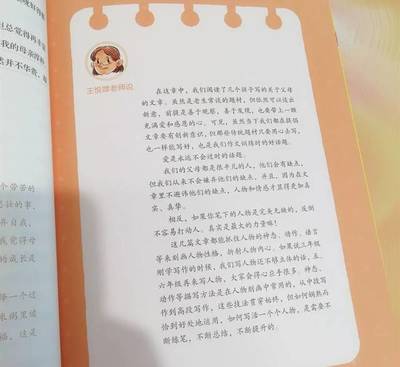 晚好得
但总觉得再丰
我的母亲
然并不华贵，
个带苦的
悲壮的事。
弃自我，
我觉得母
的成长是
举一个过
来阅里读
福，这是
王悦微老师说
在这章中，我们阅读了几个孩子写的关于父母
的文章。虽然是老生常谈的题材，但依然可以谈出
新意，前提是善于观察，善于发现，也要带上一颗
充满爱和感恩的心。可见，虽然当下我们都在提倡
文章要有创新意识，但那些传统题材只要用心去写，
也一样能写好，也是我们作文训练时的好话题。
爱是永远不会过时的话题。
我们的父母都是很平凡的人，他们会有缺点，
但我们从来不会嫌弃他们的缺点，并且，因为在文
章里不避讳他们的缺点，人物和情感才显得更加真
实、真挚。
相反，如果你笔下的人物是完美无缺的，反倒
不容易打动人。真实是最大的说服力。
这几篇文章都能抓住人物的神态、动作、语言
等来刻画人物性格，折射人物内心。如果说三年级
刚学写作的时候，我们写人物还不够立体的话，五、
六年级再来写人物，大家会得心应手很多。神态、
动作等描写方法是在人物刻画中常用的，从中段写
作到高段写作，这些技法贯穿始终，但如何娴熟而
恰到好处地运用，如何写活一个个人物，是需要不
断练笔，不断总结，不断提升的。